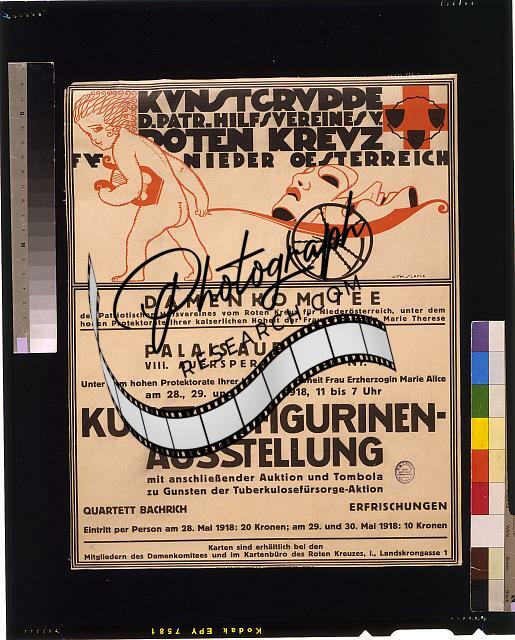 KVNSTGRVPPE
D. PATR. HILFSVEREINES V.
ROTEN KREVZ
FVR NIEDER OESTERREICH
DAMENKOMITEE
des Patriotischen Hilfsvereines vom Roten Kreuz für Niederösterreich, unter dem
hohen Protektorate Ihrer kaiserlichen Hoheit der Frau Marie Therese
Photograph
RESEARCH.COM
PALAIS
VIII.
Unter dem hohen Protektorate Ihrer Hoheit Frau Erzherzogin Marie Alice
am 28., 29. 1918, 11 bis 7 Uhr
FIGURINEN-
AUSSTELLUNG
mit anschließender Auktion und Tombola
zu Gunsten der Tuberkulosefürsorge-Aktion
QUARTETT BACHRICH ERFRISCHUNGEN
Eintritt per Person am 28. Mai 1918: 20 Kronen; am 29. und 30. Mai 1918: 10 Kronen
Karten sind erhältlich bei den
Mitgliedern des Damenkomitees und im Kartenbüro des Roten Kreuzes, I., Landskrongasse 1
Kodak EPY 7581